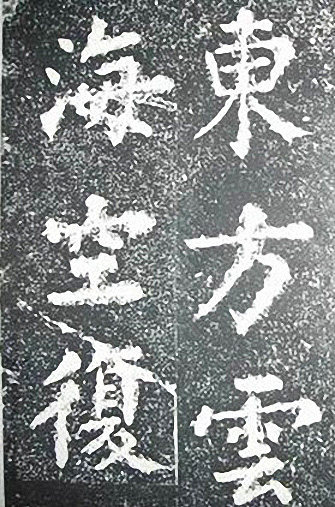 東方雲
海空復